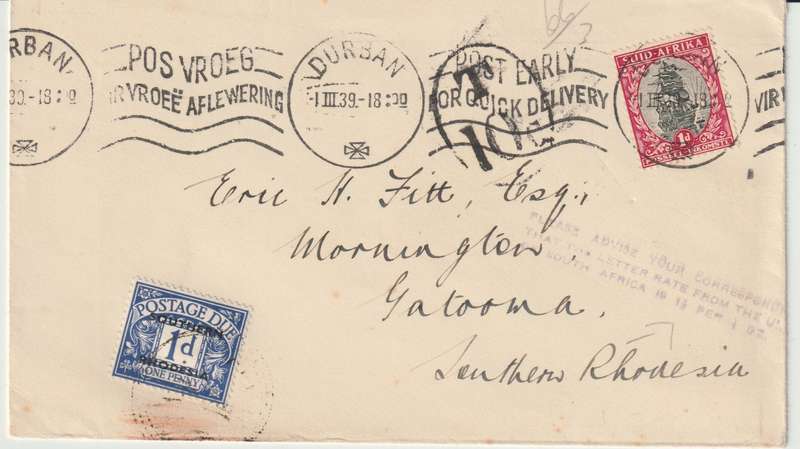 DURBAN
POS VROEG
VIR VROEË AFLEWERING
DURBAN
1 III 39.-18
POST EARLY
FOR QUICK DELIVERY
T
10c
SUID-AFRIKA
1d
POSSEEL INKOMSTE
VIR
Eric H. Fitt, Esq.,
Mornington,
Gatooma,
Southern Rhodesia
PLEASE ADVISE YOUR CORRESPONDENT
THAT THE LETTER RATE FROM THE U
SOUTH AFRICA IS 1½ PER 1 OZ.
POSTAGE DUE
SOUTHERN
1d
RHODESIA
ONE PENNY